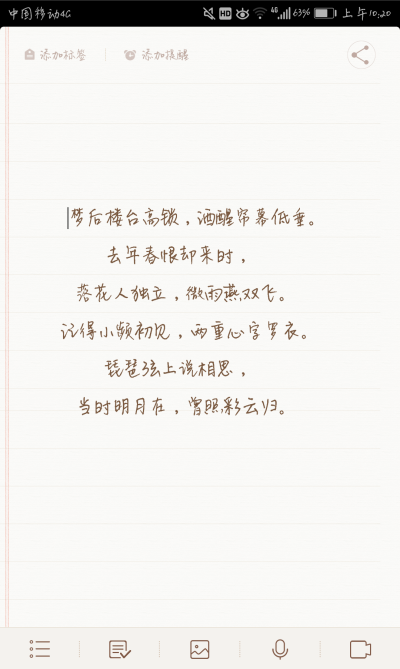 中国移动4G HD 4G 63% 上午10:20
添加标签 添加提醒
梦后楼台高锁，酒醒帘幕低垂。
去年春恨却来时，
落花人独立，微雨燕双飞。
记得小频初见，两重心字罗衣。
琵琶弦上说相思，
当时明月在，曾照彩云归。